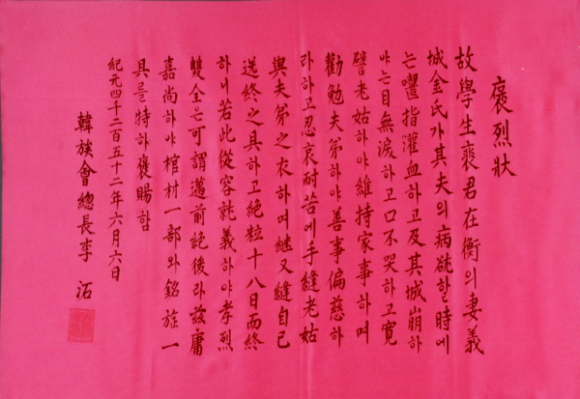 褒烈狀
故學生裵君在衡의妻義
城金氏가其夫의病欲할時에
는嚙指灌血하고及其城崩하
야는目無淚하고口不哭하고寬
譬老姑하야維持家事하며
勸勉夫弟하야善事偏慈하
라하고忍哀耐苦에手縫老姑
與夫弟之衣하며継又縫自己
送終之具하고絶粒十八日而終
하니若此從容就義하야孝烈
雙全은可謂邁前絶後라玆庸
嘉尙하야棺村一部와銘旌一
具를特하褒賜함
紀元四千二百五十二年六月六日
韓族會總長李沰